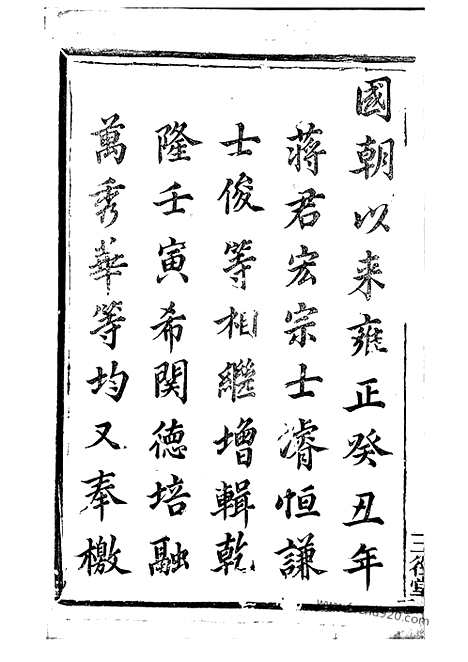 國朝以來雍正癸丑年
蔣君宏宗士濬恒謙
士俊等相繼增輯乾
隆壬寅希関德培融
萬秀華等均又奉檄